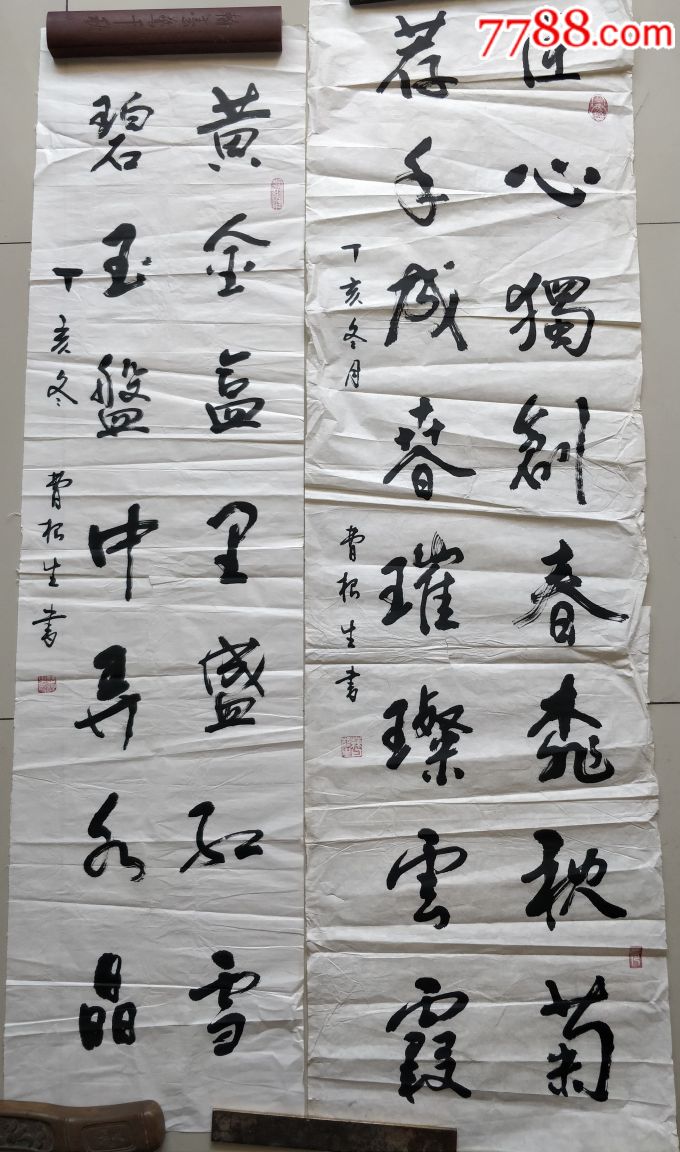 7788.com
匠心獨創春桃秋菊
荐手成春璀璨雲霞
丁亥冬月 曹根生書
黄金盒里盛红雪
碧玉盤中弄水晶
丁亥冬 曹根生書